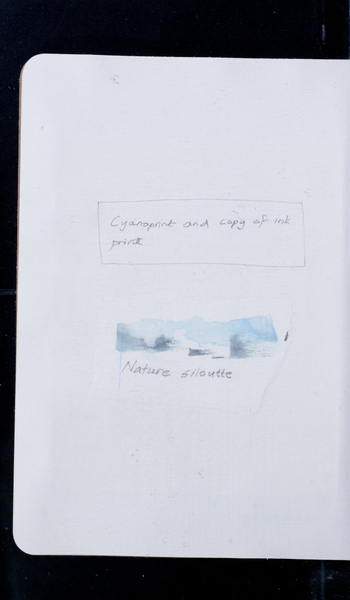 Cyanoprint and copy of ink
print
Nature siloutte